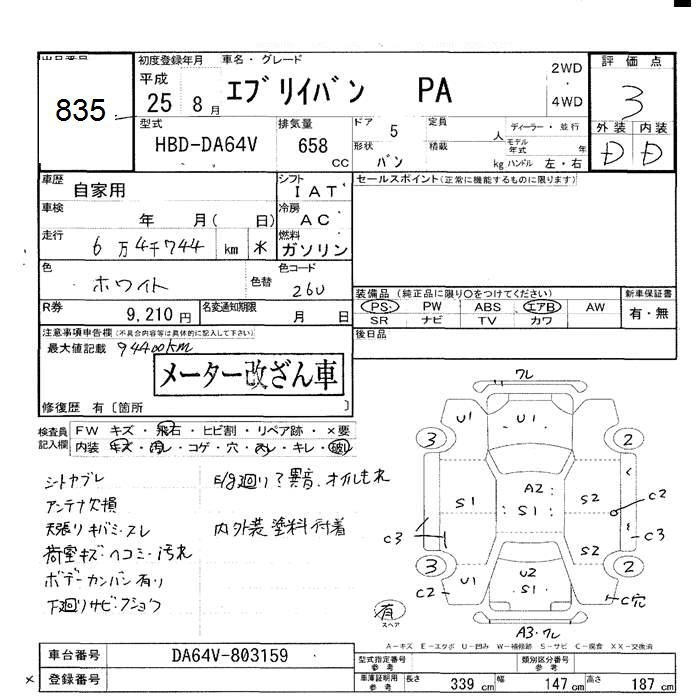 出品番号
835
初度登録年月 車名・グレード
平成 25 8 月
エブリイバン PA
2WD
・
4WD
評価点
3
外装 内装
D D
型式
HBD-DA64V
排気量
658 CC
ドア 5
定員 人
形状 バン
積載 kg
ディーラー・並行
モデル年式 年
ハンドル 左・右
車歴 自家用
シフト IAT
車検 年 月( 日)
冷房 AC
走行 6万4千744 km 米
燃料 ガソリン
色 ホワイト 色替
色コード 26U
R券 9,210円
名変通知期限 月 日
セールスポイント(正常に機能するものに限ります)
装備品(純正品に限り○をつけてください)
PS PW ABS エアB AW
SR ナビ TV カワ
新車保証書
有・無
後日品
注意事項申告欄(不具合内容等は具体的に記入して下さい)
最大値記載 94400km
メーター改ざん車
修復歴 有〔箇所 〕
検査員記入欄
FW キズ・飛石・ヒビ割・リペア跡・×要
内装 キズ・汚レ・コゲ・穴・スレ・キレ・破レ
シートヤブレ
アンテナ欠損
天張りキバミ・スレ
荷室キズ・ヘコミ・汚れ
ボデーカンバン有り
下廻りサビ・フショク
E/g廻り?異音、オイルもれ
内外装塗料付着
ワレ
U1 U1
3 2
A2 S1
S1 S2
C2
C3 C3
S2
3 2
U1 U2 S1
C2 C穴
有
スペア
A3・ワレ
A-キズ E-エクボ U-凹み W-補修跡 S-サビ C-腐食 XX-交換済
車台番号 DA64V-803159
登録番号
型式指定番号 参考
類別区分番号 参考
車庫証明用 参考 長さ 339 cm 幅 147 cm 高さ 187 cm